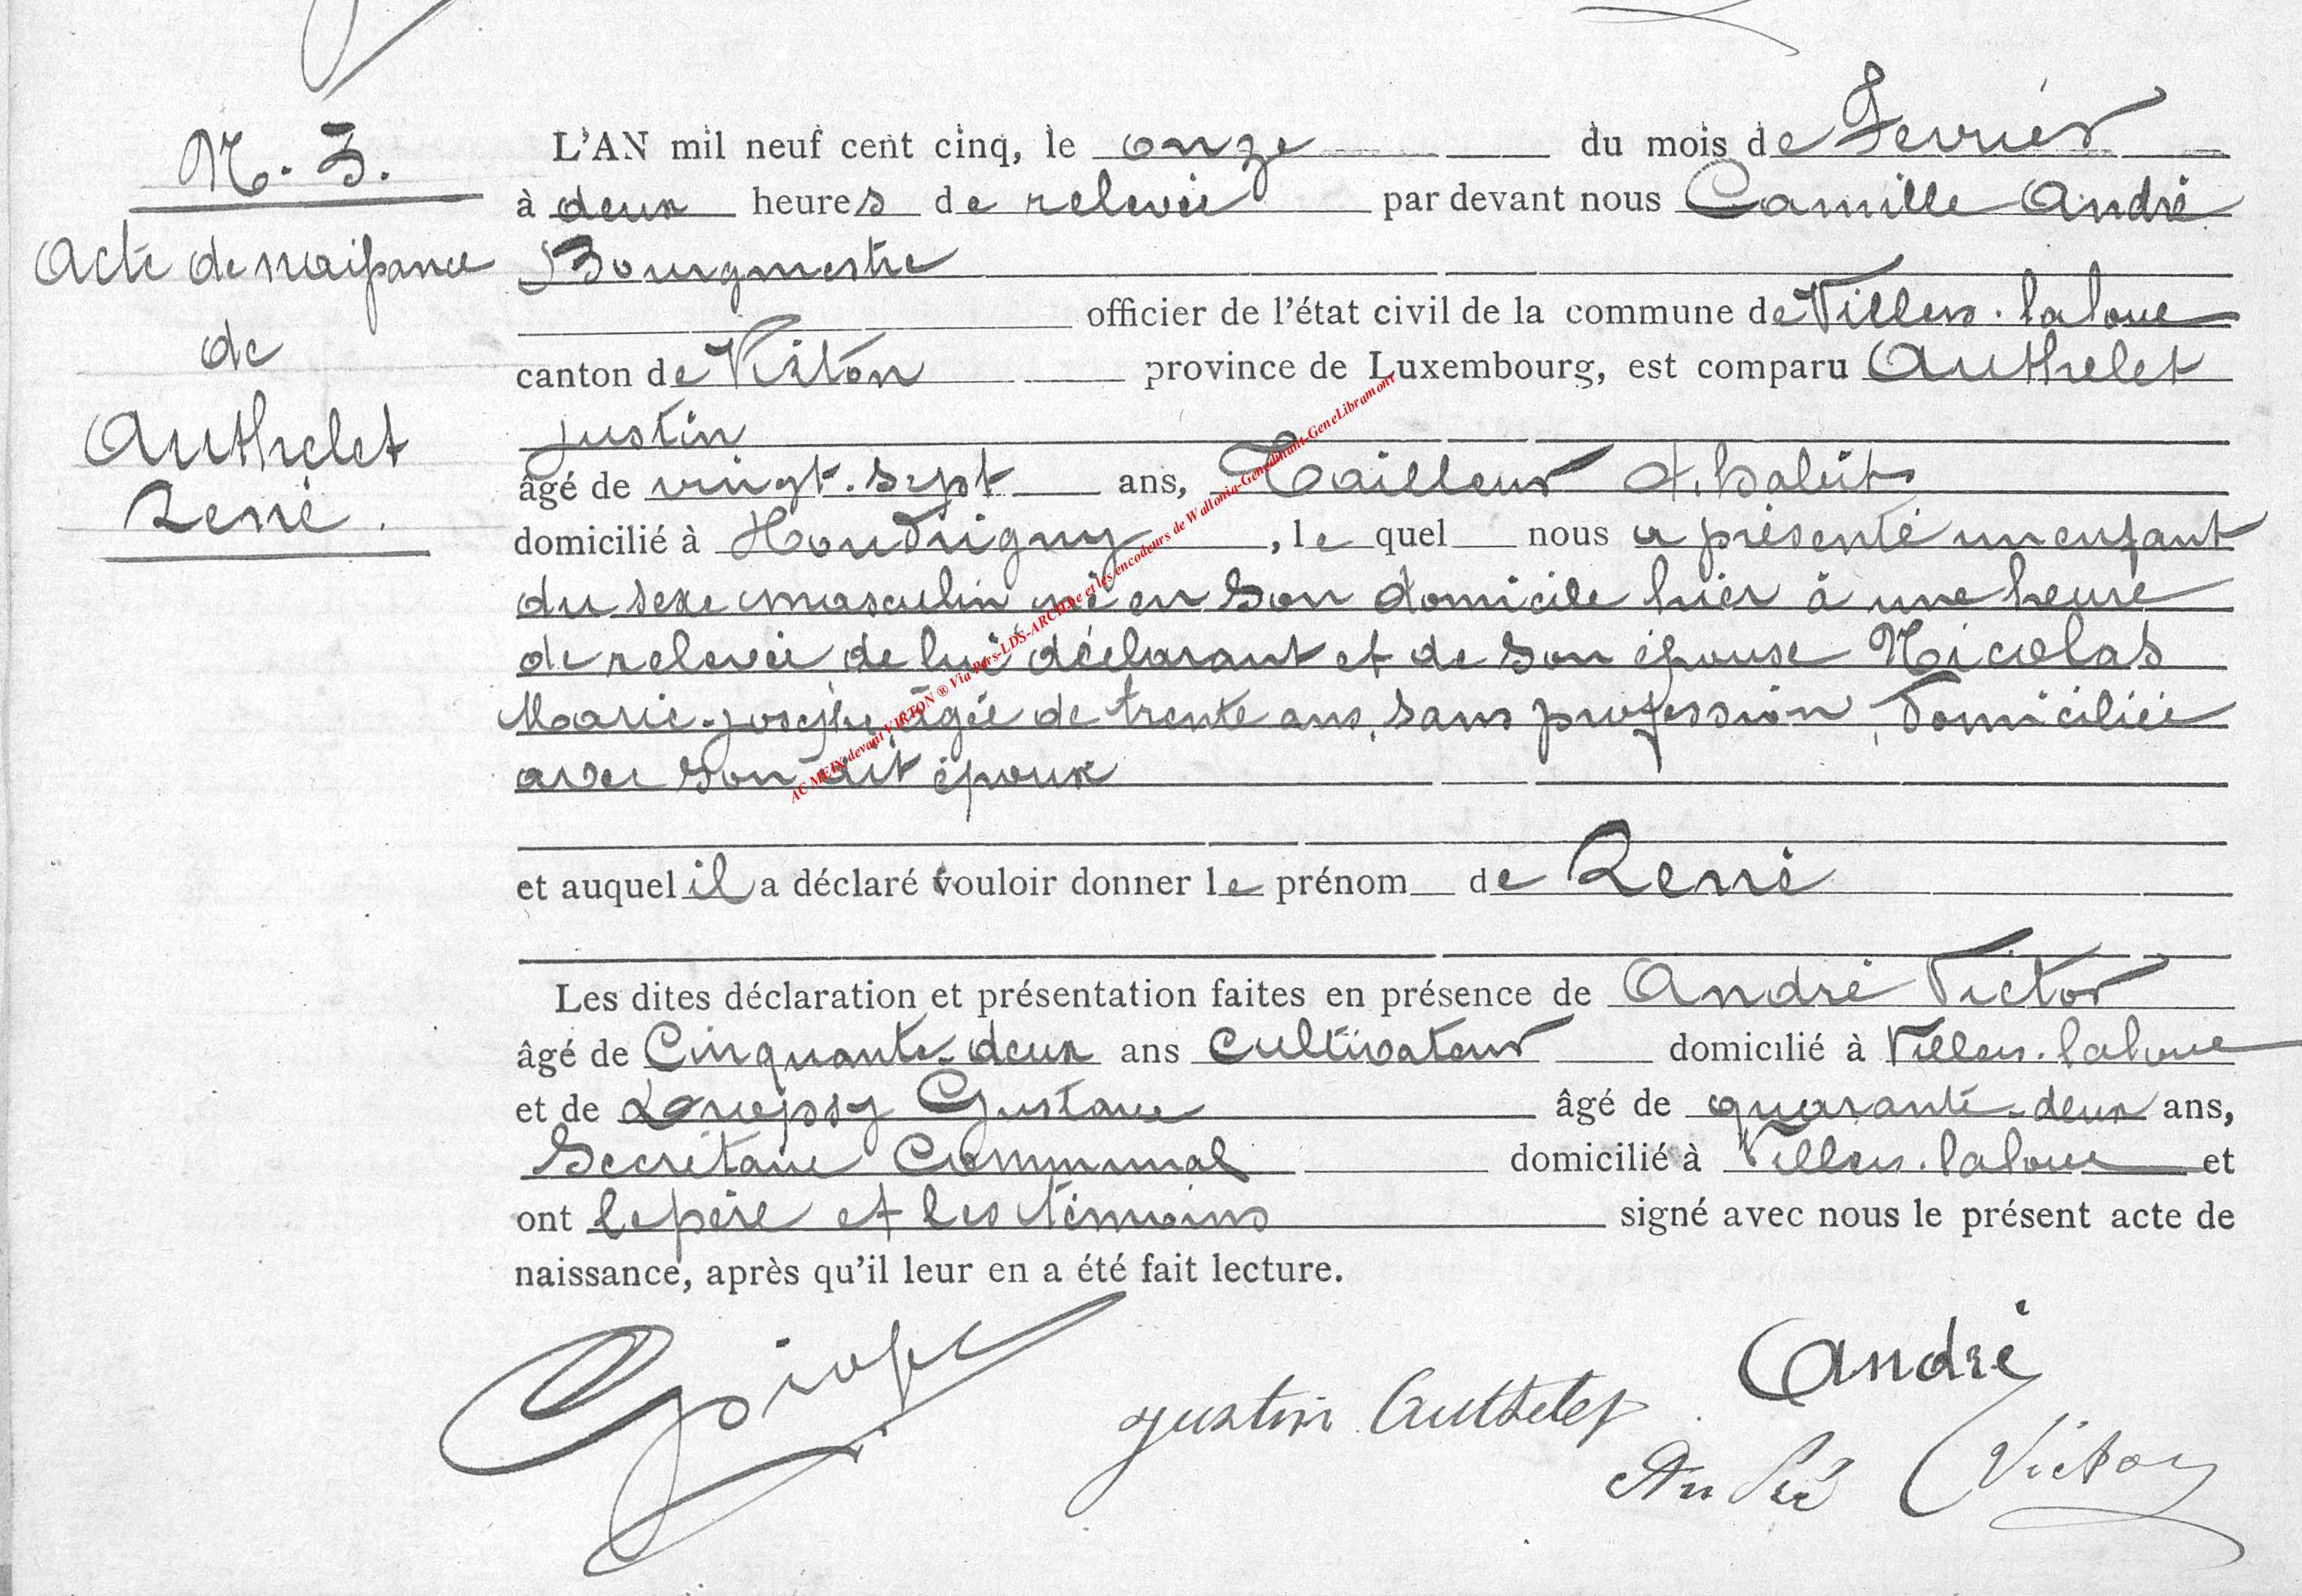 N. 3.
Acte de naissance
de
Authelet
René.
L'AN mil neuf cent cinq, le onze du mois de Fevrier
à deux heures de relevée par devant nous Camille André
Bourgmestre
officier de l'état civil de la commune de Villers-laloue
canton de Virton province de Luxembourg, est comparu Authelet
justin
âgé de vingt-sept ans, Tailleur d'habits
domicilié à Houdrigny, le quel nous a présenté un enfant
du sexe masculin né en son domicile hier à une heure
de relevée de lui déclarant et de son épouse Nicolas
Marie-josephe âgée de trente ans, sans profession, domiciliée
avec son dit époux
et auquel il a déclaré vouloir donner le prénom de René
Les dites déclaration et présentation faites en présence de André Victor
âgé de Cinquante-deux ans cultivateur domicilié à Villers-laloue
et de Gustave âgé de quarante-deux ans,
Secrétaire Communal domicilié à Villers-laloue et
ont le père et les témoins signé avec nous le présent acte de
naissance, après qu'il leur en a été fait lecture.
André
justin Authelet
André Victor
AC MEIX-devant-VIRTON ® Via Pers-LDS-ARCHIVE et les encodeurs de Wallonia-Genedinant-GeneLibramont